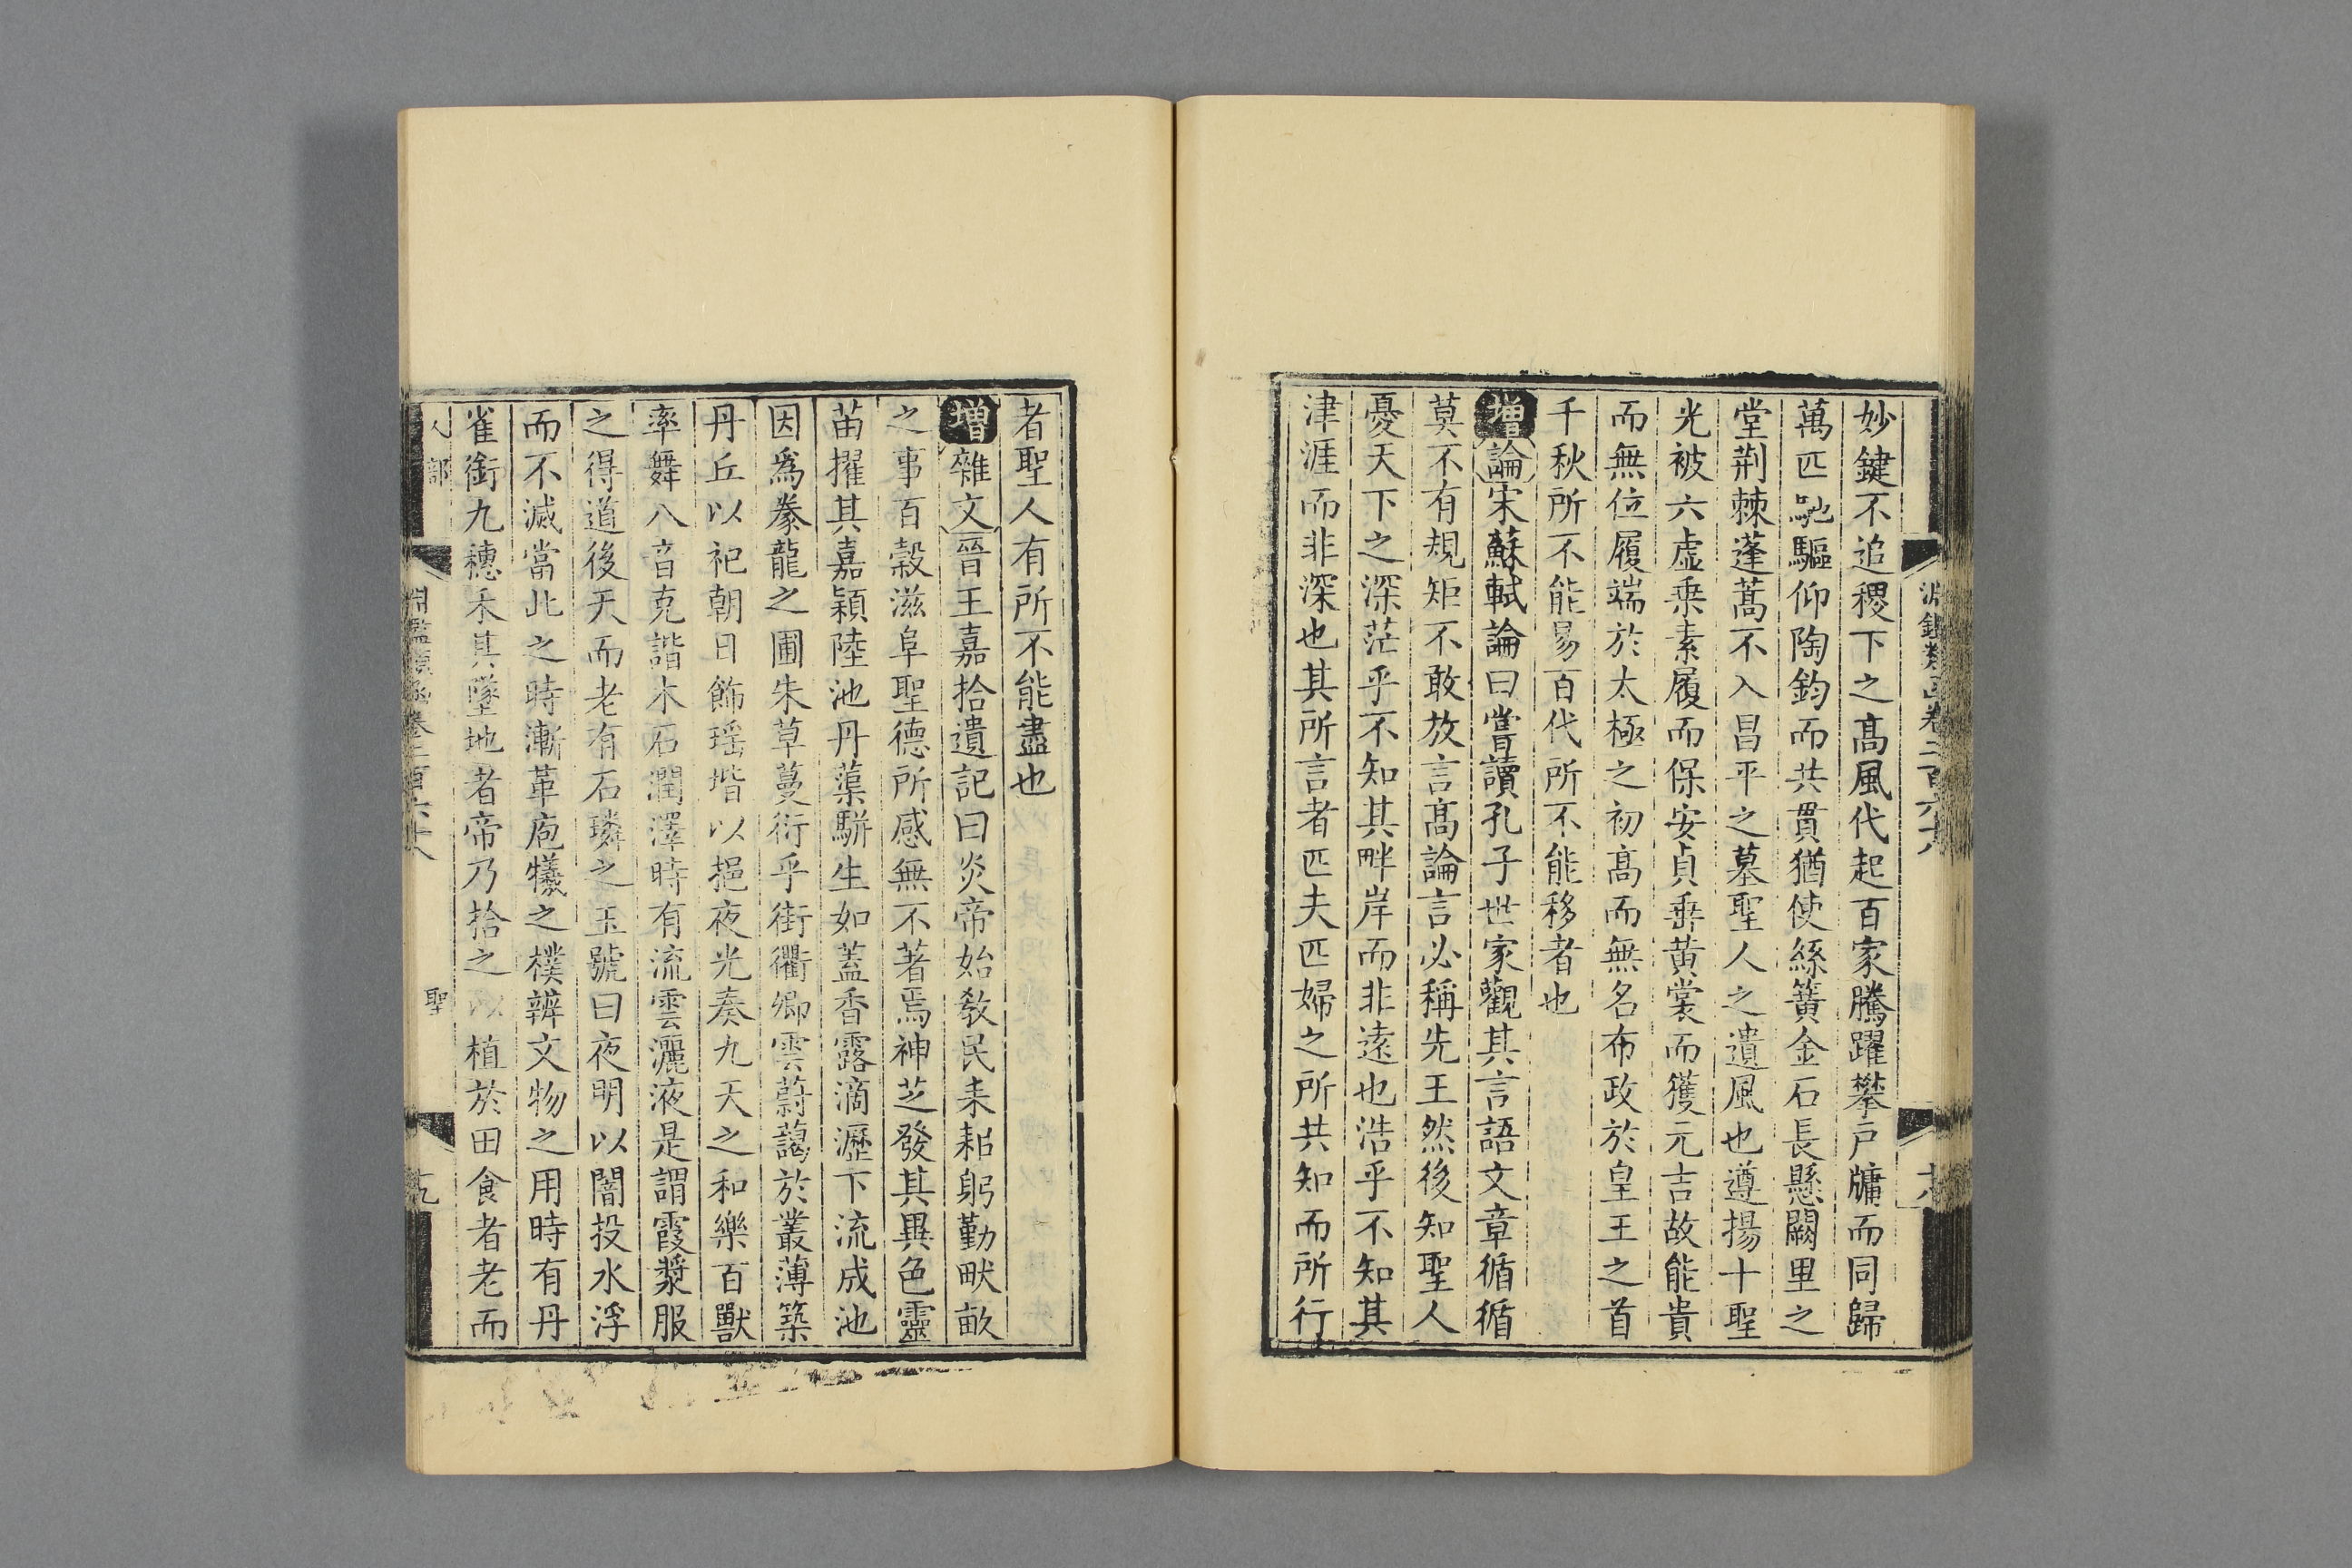 妙鍵不追稷下之髙風代起百家騰躍攀戸牖而同歸
萬匹馳驅仰陶鈞而共貫猶使絲簧金石長懸闕里之
堂荆棘蓬蒿不入昌平之墓聖人之遺風也遵揚十聖
光被六虛乗素履而保安貞垂黄裳而獲元吉故能貴
而無位履端於太極之初髙而無名布政於皇王之首
千秋所不能易百代所不能移者也
増論宋蘇軾論曰嘗讀孔子世家觀其言語文章循循
莫不有規矩不敢放言髙論言必稱先王然後知聖人
憂天下之深茫乎不知其畔岸而非遠也浩乎不知其
津涯而非深也其所言者匹夫匹婦之所共知而所行
者聖人有所不能盡也
増雜文晉王嘉拾遺記曰炎帝始敎民耒耜躬勤畎畝
之事百穀滋阜聖德所感無不著焉神芝發其異色靈
苗擢其嘉穎陸池丹蕖駢生如蓋香露滴瀝下流成池
因爲豢龍之圃朱草蔓衍乎街衢卿雲蔚藹於叢薄築
丹丘以祀朝日飾瑶堦以挹夜光奏九天之和樂百獸
率舞八音克諧木石潤澤時有流雲灑液是謂霞漿服
之得道後天而老有石璘之玉號曰夜明以闇投水浮
而不滅當此之時漸革庖犧之樸辨文物之用時有丹
雀銜九穗禾其墜地者帝乃拾之以植於田食者老而
人部
淵鑑類函卷二百六十八
聖
十九